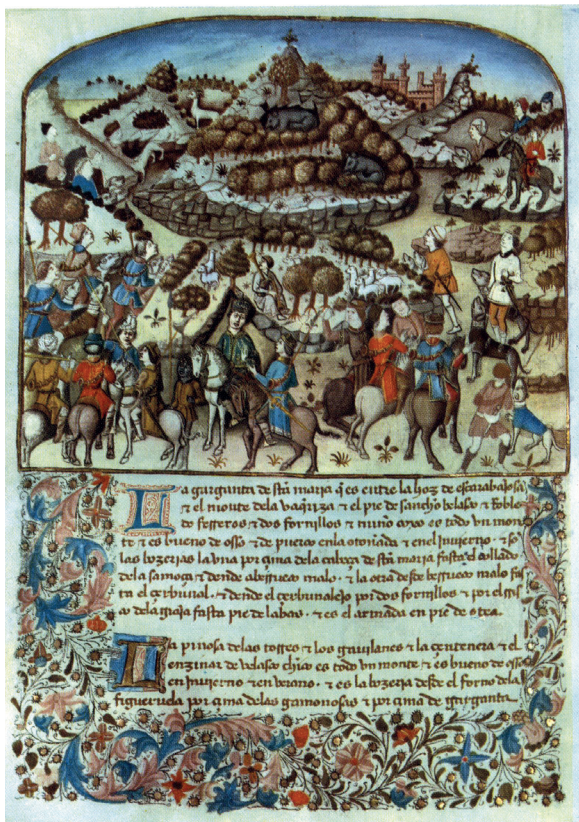 La garganta de sta maria q̄ es entre la hoz de escarabajosa
⁊ el monte dela vaqriza ⁊ el pie de sancho belasco ⁊ Roble
do ⁊ dos fornillos ⁊ es todo vn mon
te ⁊ es bueno de osso ⁊ de puerco enla otoñada ⁊ enel Inuierno ⁊ so
las bozerias la vna por çima dela cabeça de sta maria fasta el collado
dela ⁊ dende malo ⁊ la otra desde malo fas
ta el ⁊ dende el por dos fornillos ⁊ por el
dela fasta pie de ⁊ es el armada en pie de
La pinosa delas torres ⁊ los gauilanes ⁊ la çentenera ⁊ el
enzinar de velasco chico es todo vn monte ⁊ es bueno de osso
en inuierno ⁊ en verano ⁊ es la bozeria desde el forno dela
figueruela por çima delas gamonosas ⁊ por çima de garganta